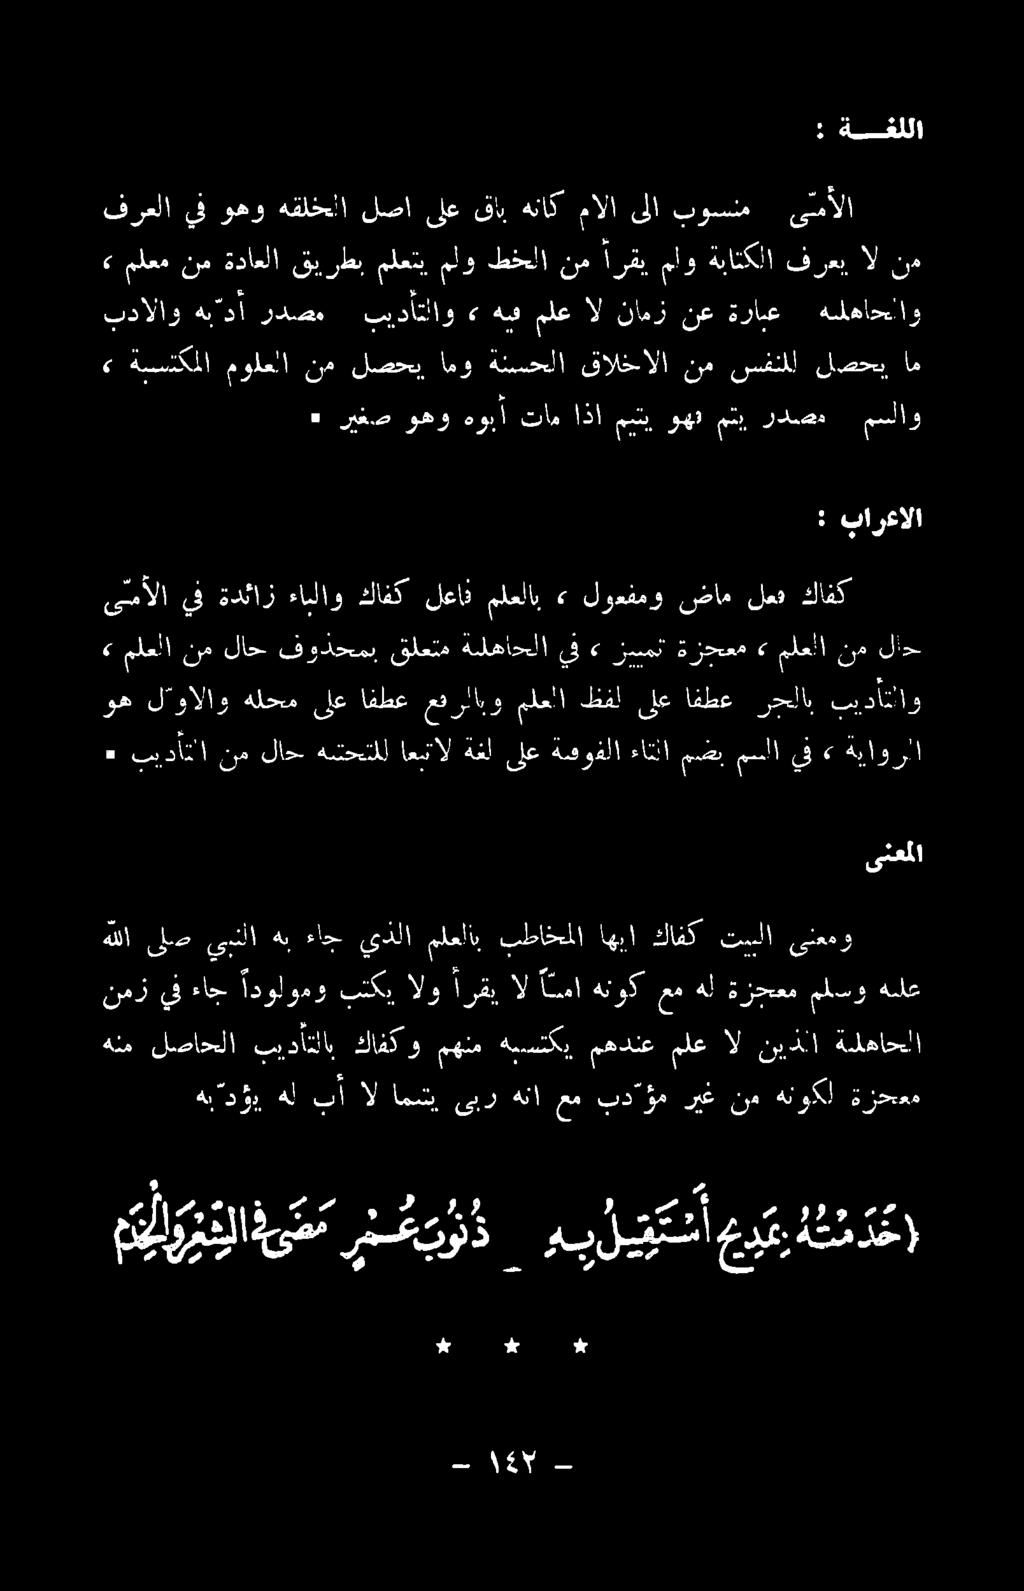 اللغـــة :
الأمّى منسوب الى الام كانه باق على اصل الخلقه وهو في العرف
من لا يعرف الكتابة ولم يقرأ من الخط ولم يتعلم بطريق العادة من معلم ،
والجاهليه عبارة عن زمان لا علم فيه ، والتأديب مصدر أدّبه والادب
ما يحصل للنفس من الاخلاق الحسنة وما يحصل من العلوم المكتسبة ،
واليتم مصدر يتم فهو يتيم اذا مات أبوه وهو صغير .
الاعراب :
كفاك فعل ماض ومفعول ، بالعلم فاعل كفاك والباء زائدة في الأمّى
حال من العلم ، معجزة تمييز ، في الجاهلية متعلق بمحذوف حال من العلم ،
والتأديب بالجر عطفا على لفظ العلم وبالرفع عطفا على محله والاوّل هو
الرواية ، في اليتم بضم التاء الفوقية على لغة لاتباعا للتحتيه حال من التأديب .
المعنى
ومعنى البيت كفاك ايها المخاطب بالعلم الذي جاء به النبي صلى الله
عليه وسلم معجزة له مع كونه اميّاً لا يقرأ ولا يكتب ومولوداً جاء في زمن
الجاهلية الذين لا علم عندهم يكتسبه منهم وكفاك بالتأديب الحاصل منه
معجزة لكونه من غير مؤدّب مع انه ربى يتيما لا أب له يؤدّبه
(خَدَمْتُهُ بِمَدِيحٍ أَسْتَقِيلُ بِهِ _ ذُنُوبَ عُمْرٍ مَضَى فِي الشِّعْرِ وَالْخِدَمِ
* * *
– ١٤٢ –